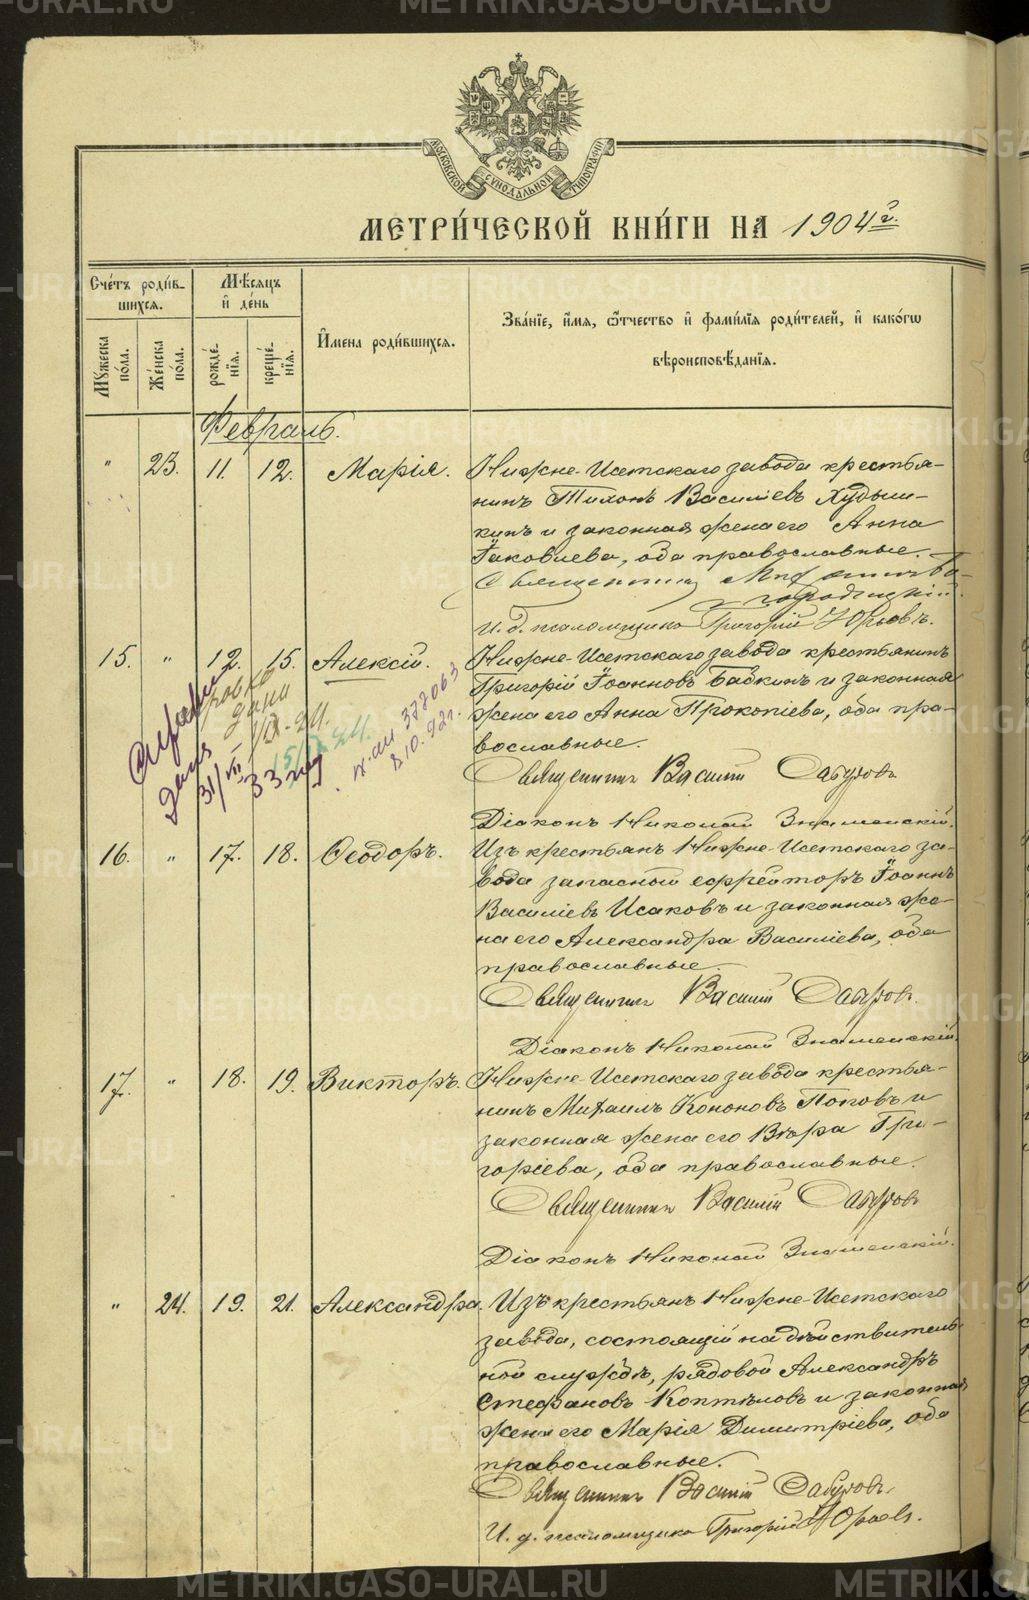 МОСКОВСКОЙ СУНОДАЛЬНОЙ ТИПОГРАФІИ
МЕТРИ́ЧЕСКОЙ КНИ́ГИ НА 1904 г.
Сче́тъ роди́в-
шихся.
Мѣ́сяцъ
и҆ де́нь
И҆мена роди́вшихся.
Зва́нїе, и҆́мя, ѻ҆́тчество и҆ фами́лїя роди́телей, и҆ како́гѡ
вѣроисповѣ́данїя.
Мꙋ́жеска
по́ла.
Же́нска
по́ла.
рожде́-
нїя.
креще́-
нїя.
Февраль.
" 23. 11. 12. Марія. Нижне-Исетскаго завода крестья-
нинъ Тихонъ Васильевъ Худыш-
кинъ и законная жена его Анна
Іаковлева, оба православные.
Священникъ
И. д. псаломщика Григорій Юрьевъ.
15. " 12. 15. Алексій. Нижне-Исетскаго завода крестьянинъ
Григорій Іоанновъ Бабкинъ и законная
жена его Анна Прокопіева, оба пра-
вославные.
Священникъ Василій Сабуровъ
Діаконъ Николай Знаменскій.
дана
31/VII 33 год
15/IX 24.
IX-АИ 372063
8.10.92г.
16. " 17. 18. Ѳеодоръ. Изъ крестьянъ Нижне-Исетскаго за-
вода запасной ефрейторъ Іоаннъ
Василіевъ Исаковъ и законная же-
на его Александра Василіева, оба
православные.
Священникъ Василій Сабуровъ.
Діаконъ Николай Знаменскій.
17. " 18. 19. Викторъ. Нижне-Исетскаго завода крестья-
нинъ Михаилъ Кононовъ Поповъ и
законная жена его Вѣра Гри-
горіева, оба православные.
Священникъ Василій Сабуровъ
Діаконъ Николай Знаменскій.
" 24. 19. 21. Александра. Изъ крестьянъ Нижне-Исетскаго
завода, состоящій на дѣйствитель-
ной службѣ, рядовой Александръ
Стефановъ Коптѣловъ и законная
жена его Марія Димитріева, оба
православные.
Священникъ Василій Сабуровъ.
И. д. псаломщика Григорій Юрьевъ.
METRIKI.GASO-URAL.RU